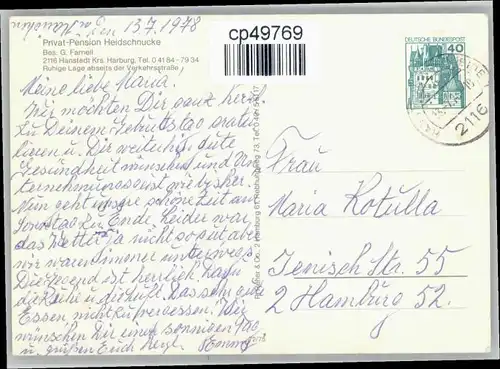 den 13.7.1978
Privat-Pension Heidschnucke
Bes. G. Farneil
2116 Hanstedt Krs. Harburg, Tel. 0 41 84 - 79 34
Ruhige Lage abseits der Verkehrsstraße
cp49769
DEUTSCHE BUNDESPOST
40
2116
Meine liebe Maria.
Wir möchten Dir ganz herzl.
zu Deinem Geburtstag gratu
lieren u. Dir weiterhin gute
Gesundheit wünschen und Un
ternehmungslust
Nun geht unsre schöne Zeit am
Sonntag zu Ende, leider war
das Wetter ja nicht so gut aber
wir waren immer unterwegs.
Die Gegend ist herrlich
die Ruhe u. die Luft. Das sehr gute
Essen nicht zu vergessen. Wir
wünschen Dir einen sonnigen Tag
u. grüßen Dich herzl.
Frau
Maria Kotulla
Jenisch Str. 55
2 Hamburg 52.